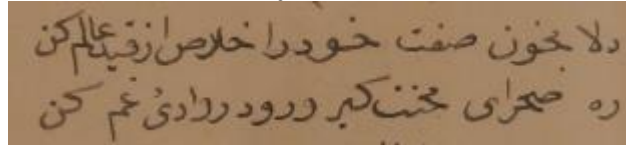 دلا مجنون صفت خود را خلاص از قید عالم کن
ره صحرای محنت گیر و رو در وادئ غم کن